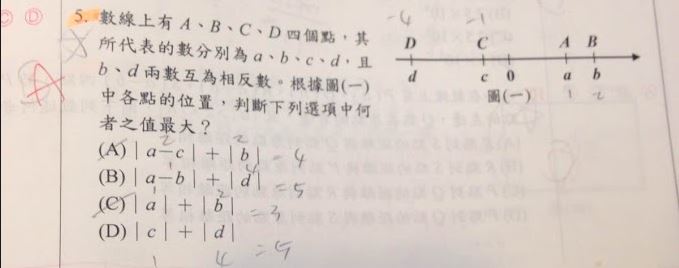 C D
5. 數線上有 A、B、C、D 四個點，其
所代表的數分別為 a、b、c、d，且
b、d 兩數互為相反數。根據圖(一)
中各點的位置，判斷下列選項中何
者之值最大？
-4 -1
D C A B
d c 0 a b
1 2
圖(一)
2 2
(A) | a-c | + | b | = 4
1 4
(B) | a-b | + | d | = 5
1 2
(C) | a | + | b | = 3
(D) | c | + | d |
1 4 = 5